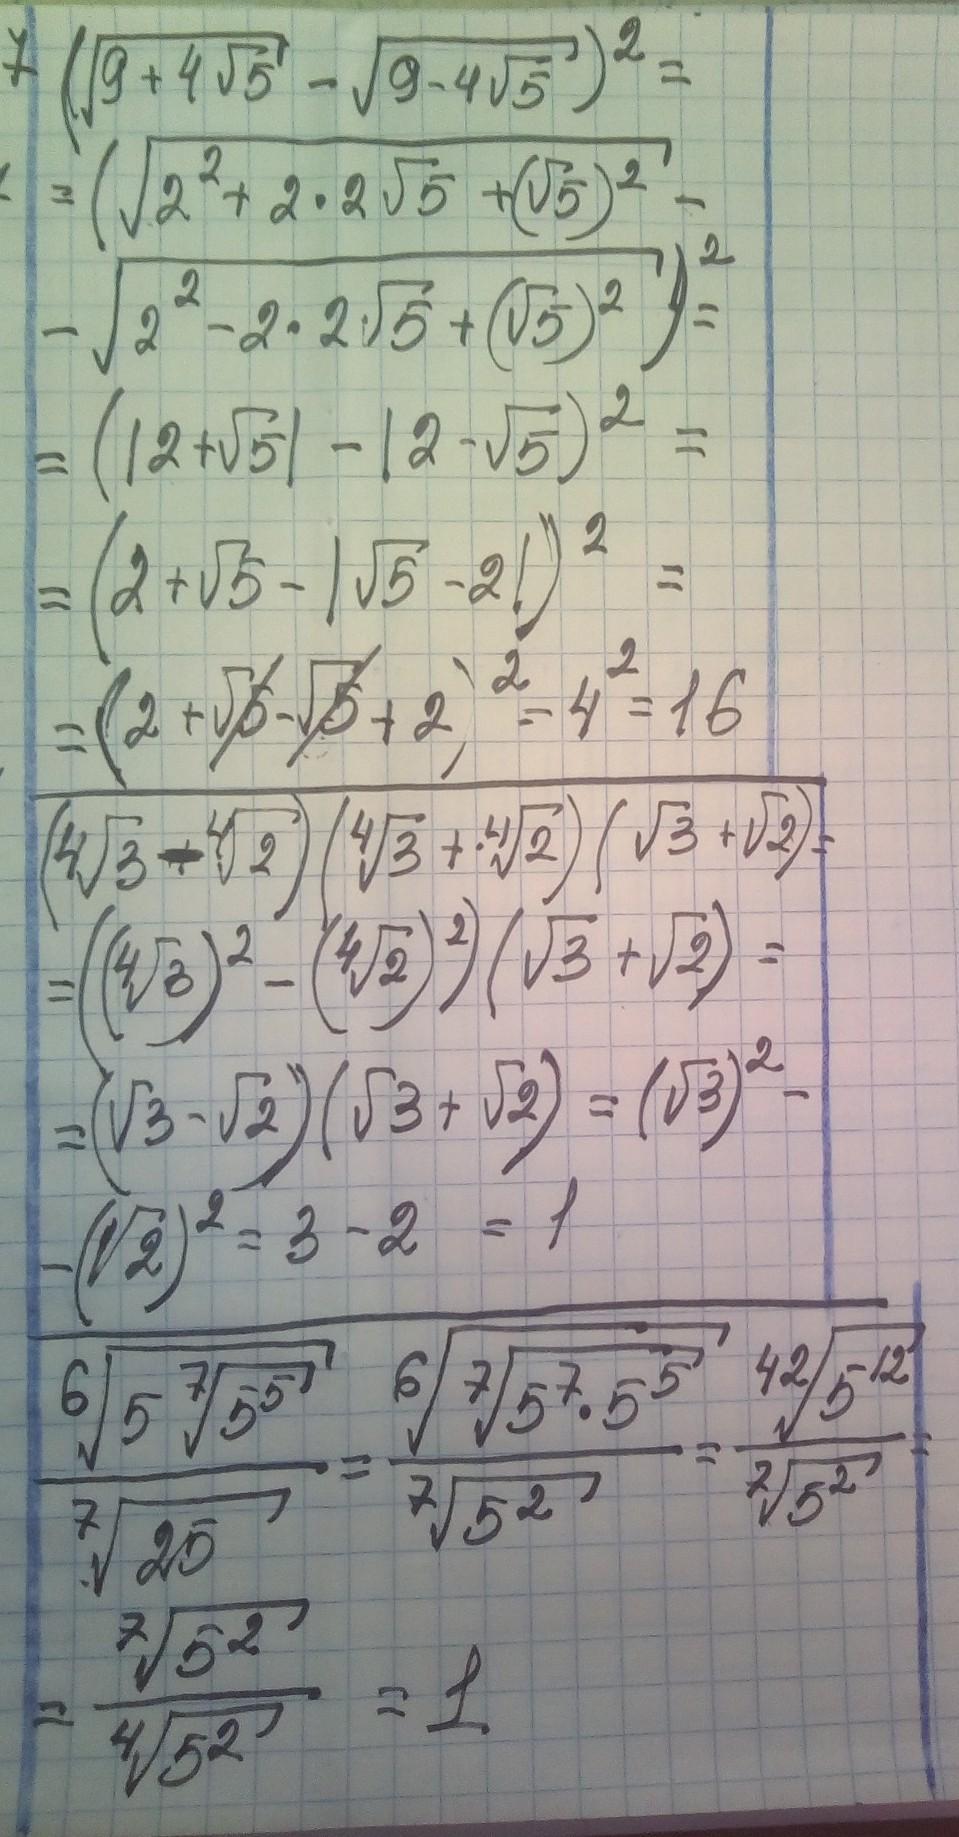 7 (√(9+4√5) - √(9-4√5))² =
= (√(2² + 2·2√5 + (√5)²) -
- √(2² - 2·2·√5 + (√5)²))² =
= (|2+√5| - |2-√5)² =
= (2+√5 - |√5 - 2|)² =
= (2+√5-√5+2)² = 4² = 16
(⁴√3 - ⁴√2)(⁴√3 + ⁴√2)(√3 + √2) =
= ((⁴√3)² - (⁴√2)²)(√3 + √2) =
= (√3 - √2)(√3 + √2) = (√3)² -
- (√2)² = 3 - 2 = 1
⁶√(5 ⁷√(5⁵)) / ⁷√25 = ⁶√(⁷√(5⁷·5⁵)) / ⁷√(5²) = ⁴²√(5¹²) / ⁷√(5²) =
= ⁷√(5²) / ⁴√(5²) = 1